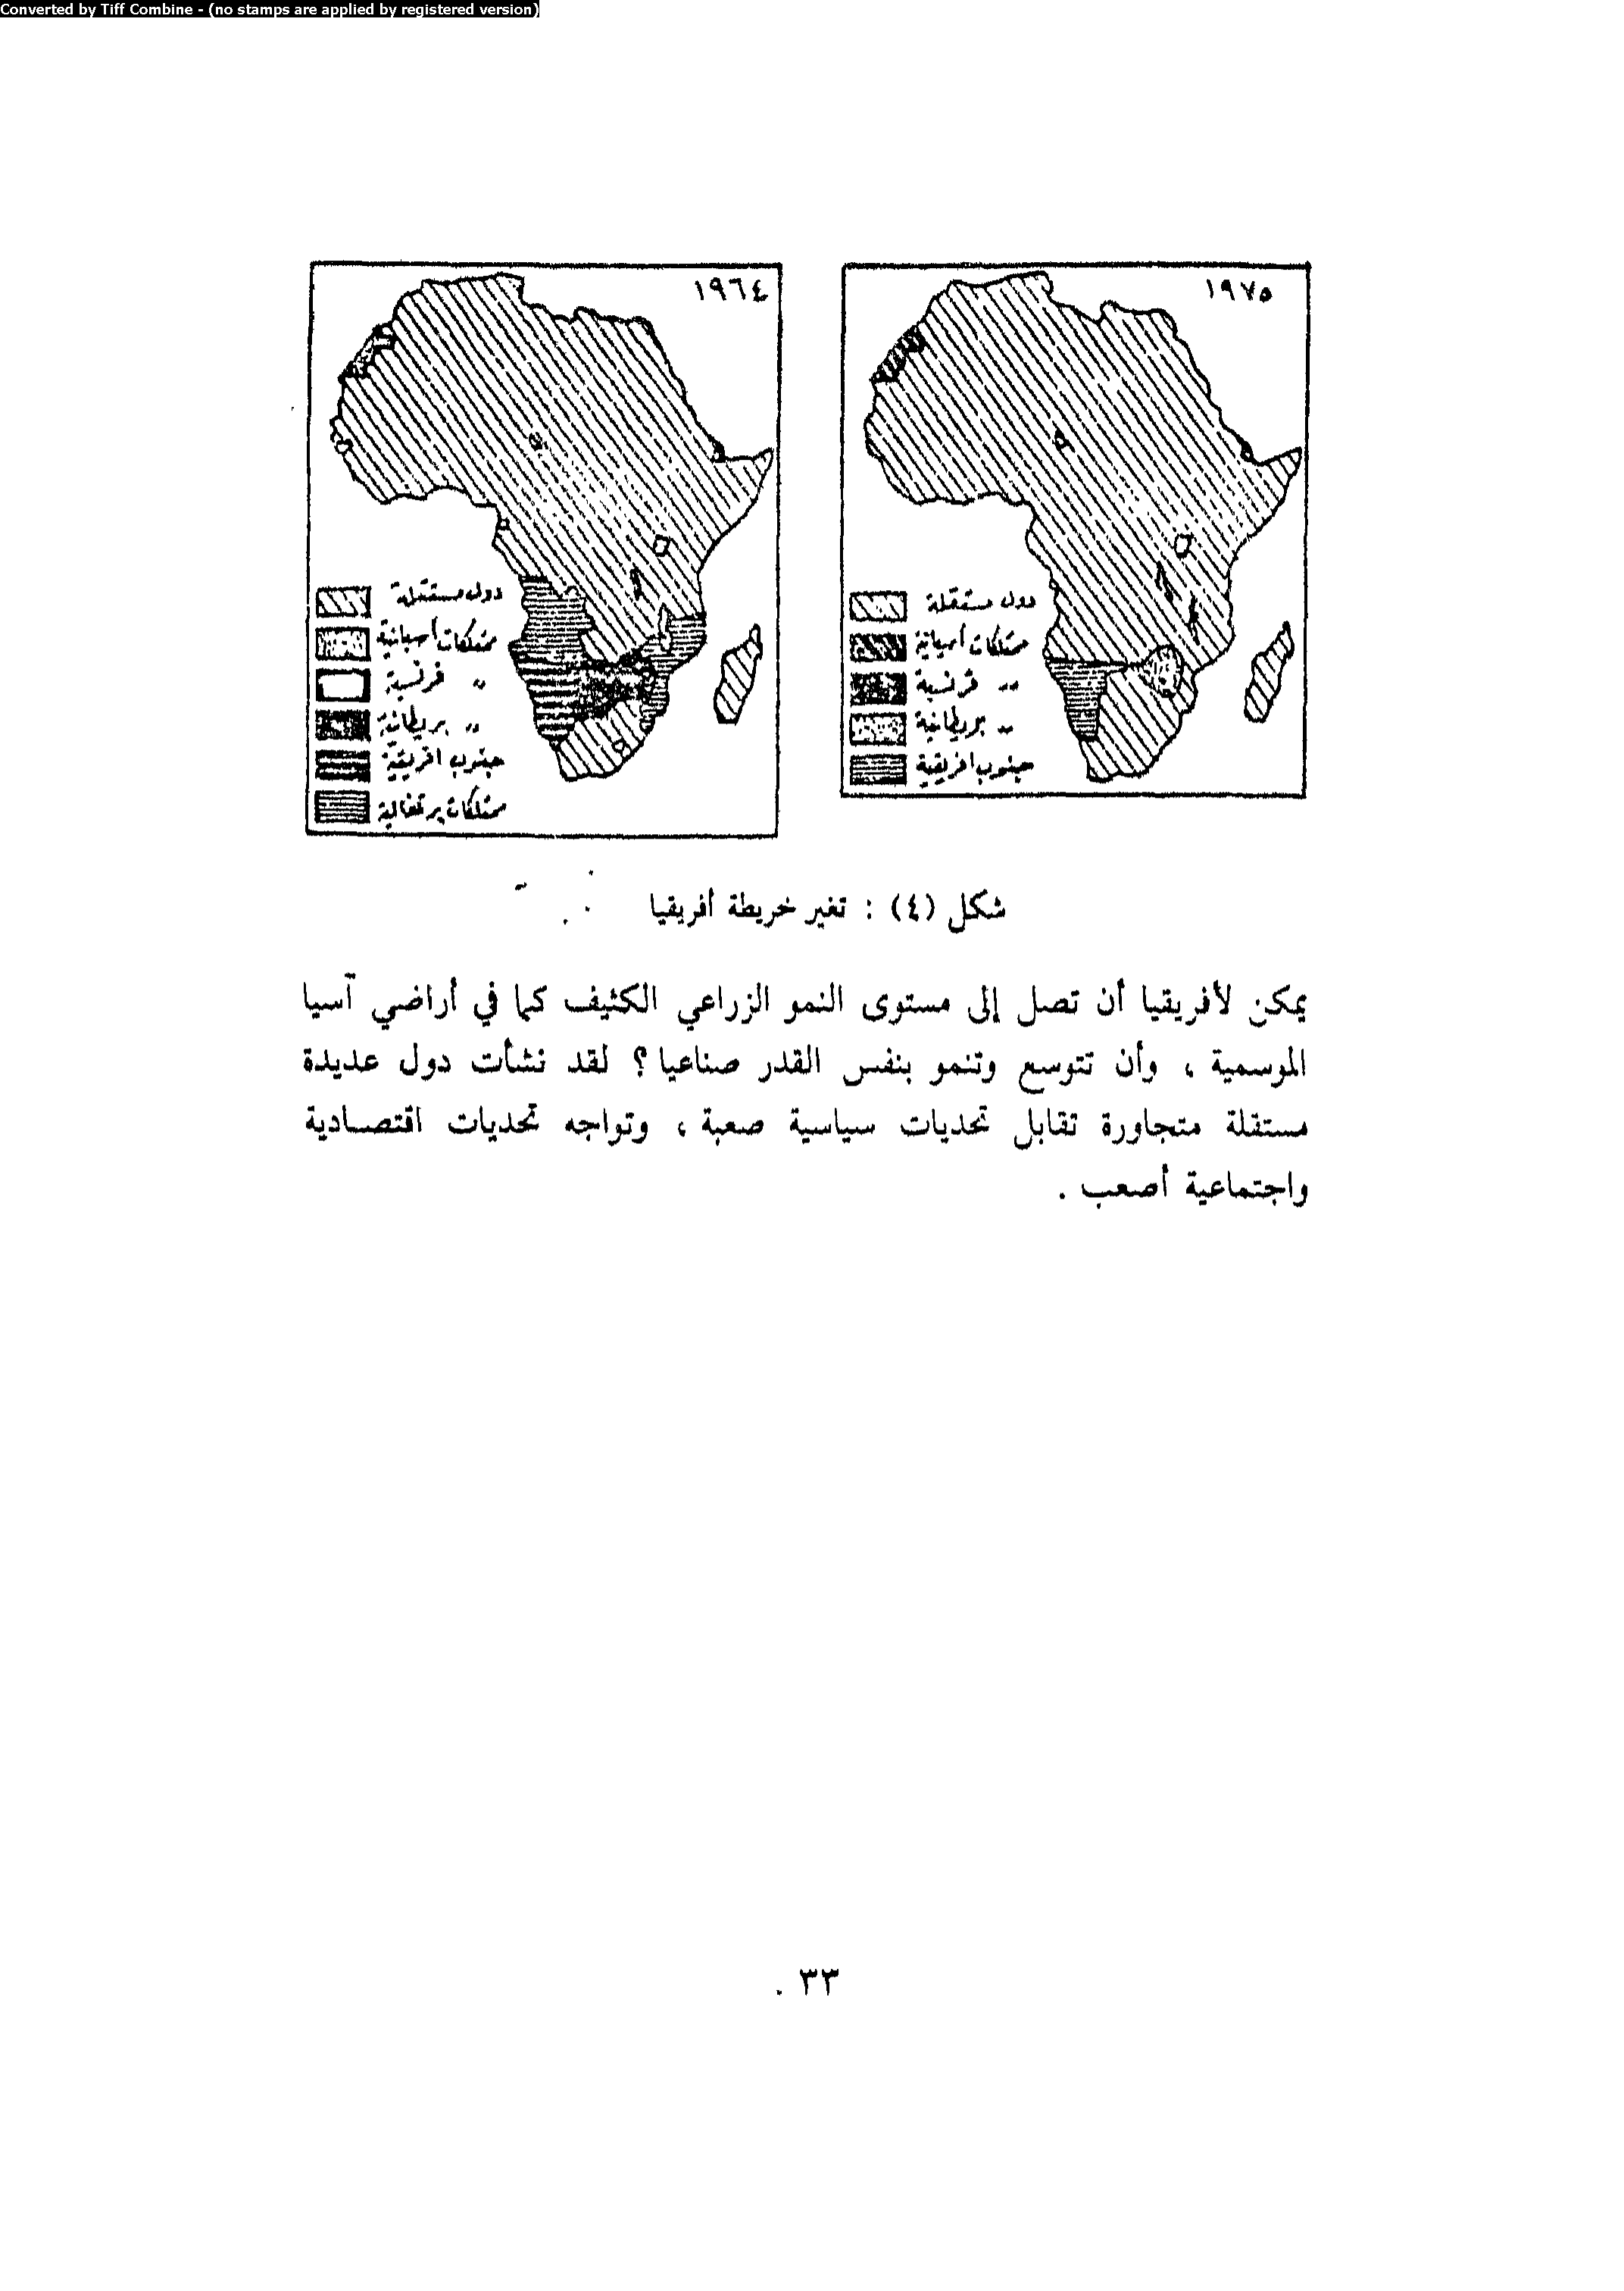 Converted by Tiff Combine - (no stamps are applied by registered version)
١٩٧٥
دول مستقلة
ممتلكات أسبانية
〃 فرنسية
〃 بريطانية
جنوب افريقية
١٩٦٤
دول مستقلة
ممتلكات أسبانية
〃 فرنسية
〃 بريطانية
جنوب افريقية
ممتلكات برتغالية
شكل (٤) : تغير خريطة أفريقيا
يمكن لأفريقيا أن تصل إلى مستوى النمو الزراعي الكثيف كما في أراضي آسيا
الموسمية ، وأن تتوسع وتنمو بنفس القدر صناعيا ؟ لقد نشأت دول عديدة
مستقلة متجاورة تقابل تحديات سياسية صعبة ، وتواجه تحديات اقتصادية
واجتماعية أصعب .
٣٣ .